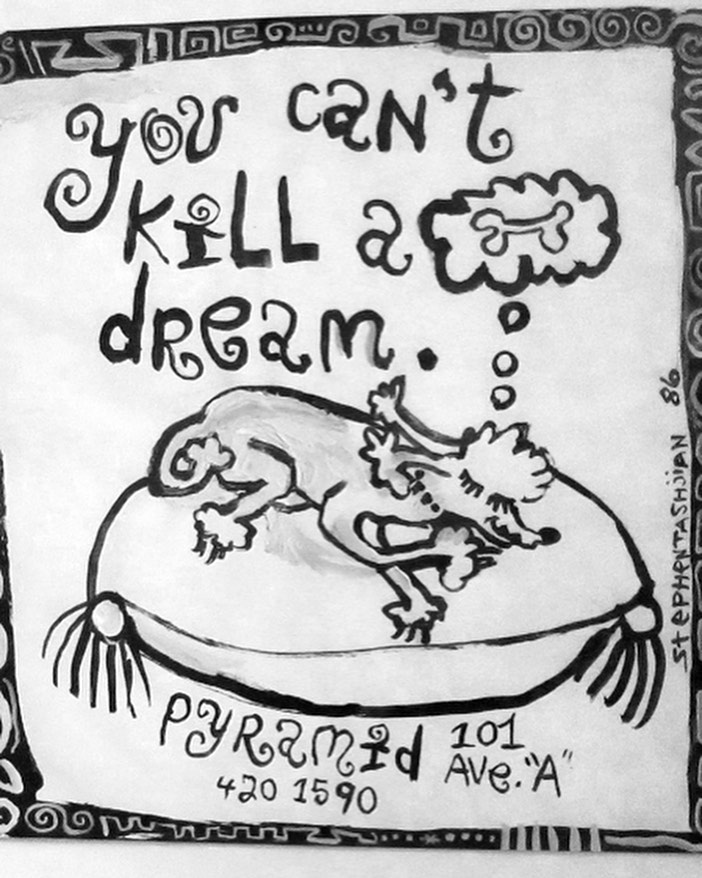 you can't
kill a
dream.
Pyramid
420 1590
101
Ave. "A"
StePHenTASHJiAN 86